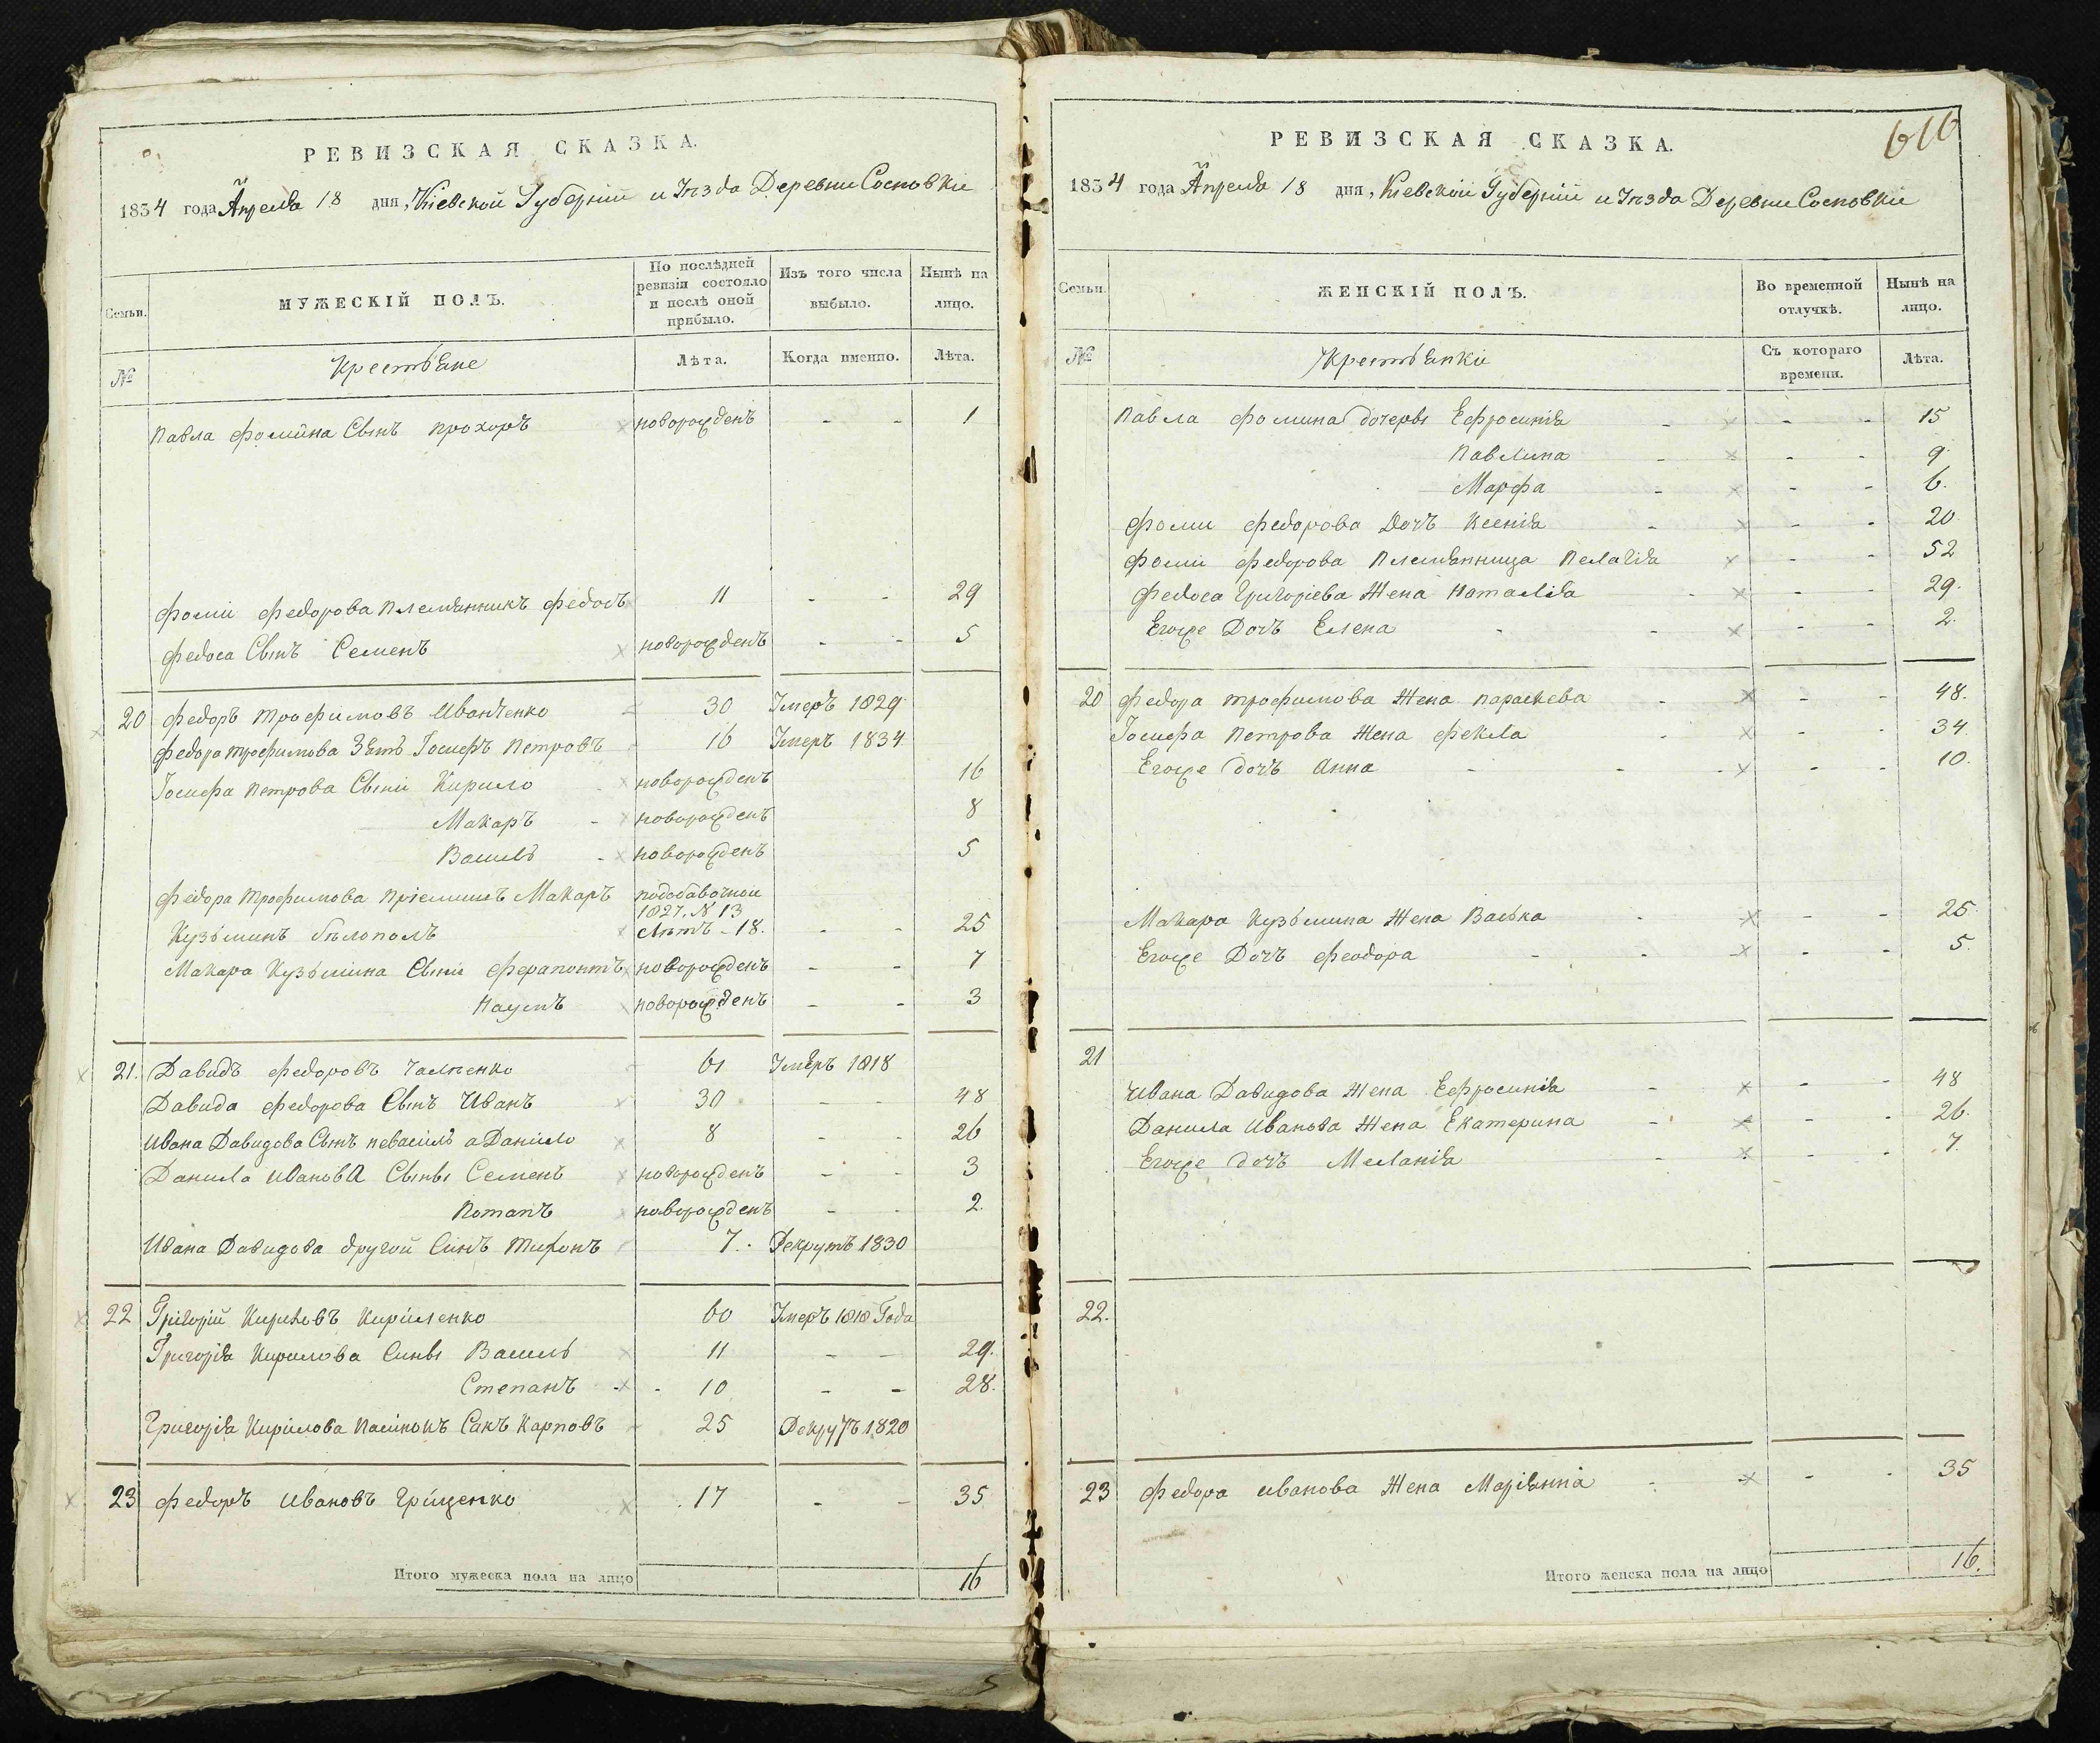 РЕВИЗСКАЯ СКАЗКА.
1834 года Апреля 18 дня, Кіевской Губерніи и Уѣзда Деревни Сосновки
Семьи.
МУЖЕСКІЙ ПОЛЪ.
По послѣдней ревизіи состояло и послѣ оной прибыло.
Изъ того числа выбыло.
Нынѣ на лицо.
№
Крестьяне
Лѣта.
Когда именно.
Лѣта.
Павла Фомина Сынъ Прохоръ новорожденъ - - 1
Фоми Федорова Племянникъ Федосъ 11 - - 29
Федоса Сынъ Семенъ новорожденъ - - 5
20 Федоръ Трофимовъ Иванченко 30 Умеръ 1829
Федора Трофимова Зять Іосифъ Петровъ 16 Умеръ 1834
Іосифа Петрова Сыни Кирило новорожденъ 16
Макаръ новорожденъ 8
Василь новорожденъ 5
Федора Трофимова Пріемишъ Макаръ подобавочной
1827, № 13
Кузьминъ Бѣлополъ Лѣтъ - 18. - - 25
Макара Кузьмина Сыни Ферапонтъ новорожденъ - - 7
Наумъ новорожденъ - - 3
21. Давидъ Федоровъ 61 Умеръ 1818
Давида Федорова Сынъ Иванъ 30 - - 48
Ивана Давидова Сынъ невасиль а Данило 8 - - 26
Данила Иванова Сыны Семенъ новорожденъ - - 3
Потапъ новорожденъ - - 2.
Ивана Давидова другой Синъ Тихонъ 7. Рекрутъ 1830
22 Григорій Кириловъ Кириленко 60 Умеръ 1818 Года
Григорія Кирилова Сины Василь 11 - - 29.
Степанъ - 10 - - 28.
Григорія Кирилова Пасинокъ Сакъ Карповъ 25 Рекрутъ 1820
23 Федоръ Ивановъ Грищенко 17 - - 35
Итого мужеска пола на лицо 16
616
РЕВИЗСКАЯ СКАЗКА.
1834 года Апреля 18 дня, Кіевской Губерніи и Уѣзда Деревни Сосновки
Семьи.
ЖЕНСКІЙ ПОЛЪ.
Во временной отлучкѣ.
Нынѣ на лицо.
№
Крестьянки
Съ котораго времени.
Лѣта.
Павла Фомина дочеры Ефросинія - - - 15
Павлина - - - 9
Марфа - - - 6.
Фоми Федорова Дочъ Ксенія - - - 20
Фоми Федорова Племянница Пелагія - - 52
Федоса Григоріева Жена Наталія - - - 29.
Егоже Дочъ Елена - - - - 2.
20 Федора Трофимова Жена Параскева - - - 48.
Іосифа Петрова Жена Фекла - - - 34.
Егоже дочъ Анна - - - - - 10.
Макара Кузьмина Жена Васька - - - 25.
Егоже Дочъ Феодора - - - - 5.
21
Ивана Давидова Жена Ефросинія - - - 48
Данила Иванова Жена Екатерина - - - 26.
Егоже дочъ Меланія - - - 7.
22.
23 Федора Иванова Жена Маріянна - - - 35
Итого женска пола на лицо 16.